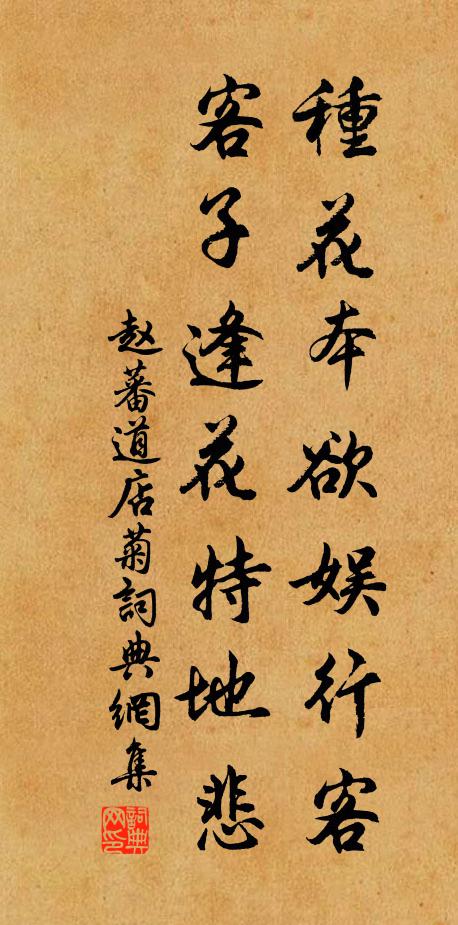 種花本欲娱行客
客子逢花特地悲
赵蕃道店菊詞典網集
詞典网印